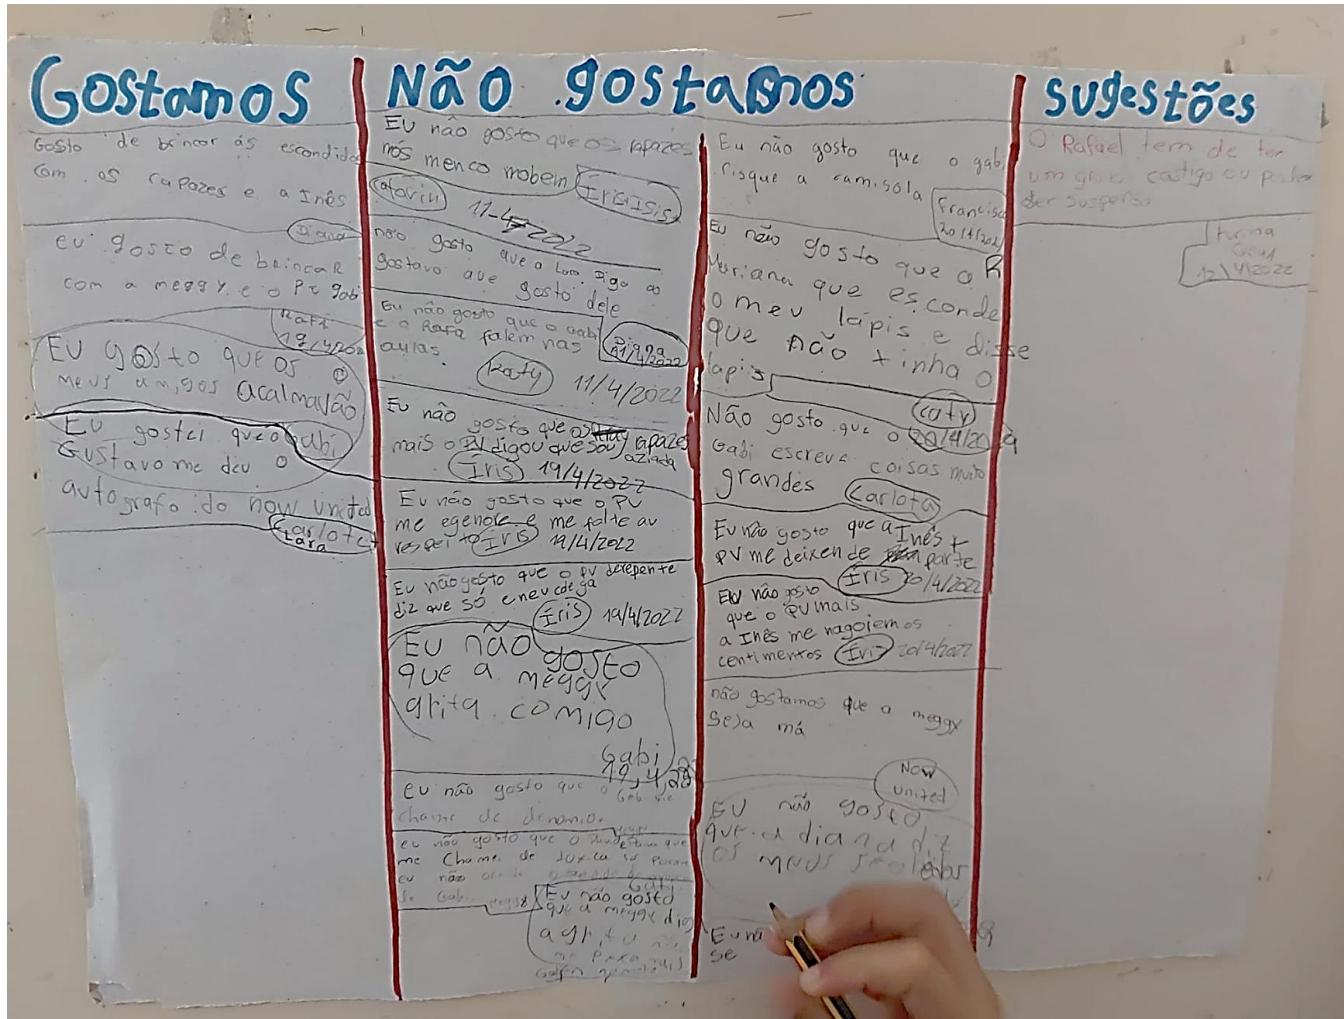 Gostamos
Gosto de brincar ás escondidas
com os rapazes e a Inês
Diana
eu gosto de brincar
com a meggy e o PV gabi
Katy
19/4/202
EU gosto que os
meus amigos acalmavão
Gabi
Eu gostei que o
Gustavo me deu o
autografo do now united
Carlota
Lara
Não gostamos
Eu não gosto que os rapazes
nós menco mobem
Íris Isis
11-4-2022
não gosto que a Lara Diga ao
gostavo que gosto dele
Diana
21/4/2022
Eu não gosto que o Gabi
e o Rafa falem nas
aulas
Katy 11/4/2022
Eu não gosto que os rapazes
mais o PV digou que sou aziada
Íris 19/4/2022
Eu não gosto que o PV
me egenore e me falte au
respeito Íris 19/4/2022
Eu não gosto que o PV derepente
diz que só
Íris 19/4/2022
Eu não gosto
que a meggy
grita comigo
Gabi
19,4,22
eu não gosto que o Gabi me
chame de demonio.
eu não gosto que o
me chame de
eu não
Gabi
Eu não gosto
que a meggy diga
agrita
Eu não gosto que o gabi
risque a camisola
Francisca
20/4/202
Eu não gosto que a
Mariana que esconde
o meu lápis e disse
que não tinha o
lapis
caty
20/4/20
Não gosto que o
Gabi escreve coisas muito
grandes Carlota
Eu não gosto que a Inês +
PV me deixen de parte
Íris 20/4/2022
Eu não gosto
que o PV mais
a Inês me nagoiem os
centimentos Íris 20/4/2022
não gostamos que a meggy
seja má
Now
united
EU não gosto
que a diana diz
os meus
Eu nã
se
Sugestões
O Rafael tem de ter
um grave castigo ou poder
ser suspenso
turma
12/4/2022